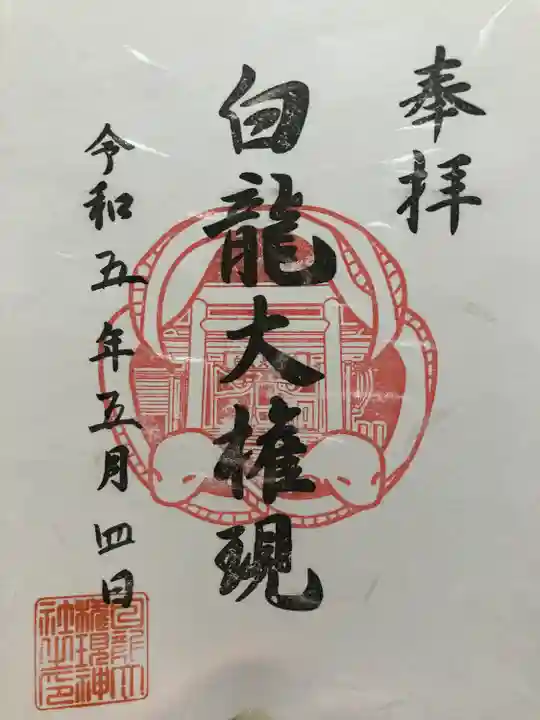 奉拝
白龍大権現
令和五年五月四日
白龍大権現神社之印